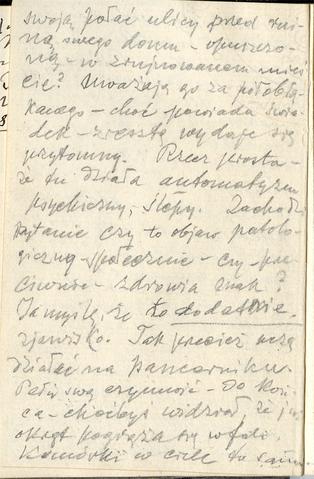 swoją połać ulicy przed rui-
ną swego domu - opuszczo-
ną - w zrujnowanem mieś
cie? Uważają go za półobłą-
kanego - choć powiada świa-
dek - zresztą wydaje się
przytomny. Rzecz prosta -
że tu działa automatyzm
psychiczny, ślepy. Zachodzi
pytanie czy to objaw patolo-
giczny - społecznie - czy - prze
ciwnie - zdrowia znak?
Ja myślę, że to dodatnie
zjawisko. Tak przecież muszą
działać na pancerniku.
Pełni swą czynność - do koń-
ca - choćby widział, że już
okręt pogrąża się w fali.
Komórki w ciele to samo.